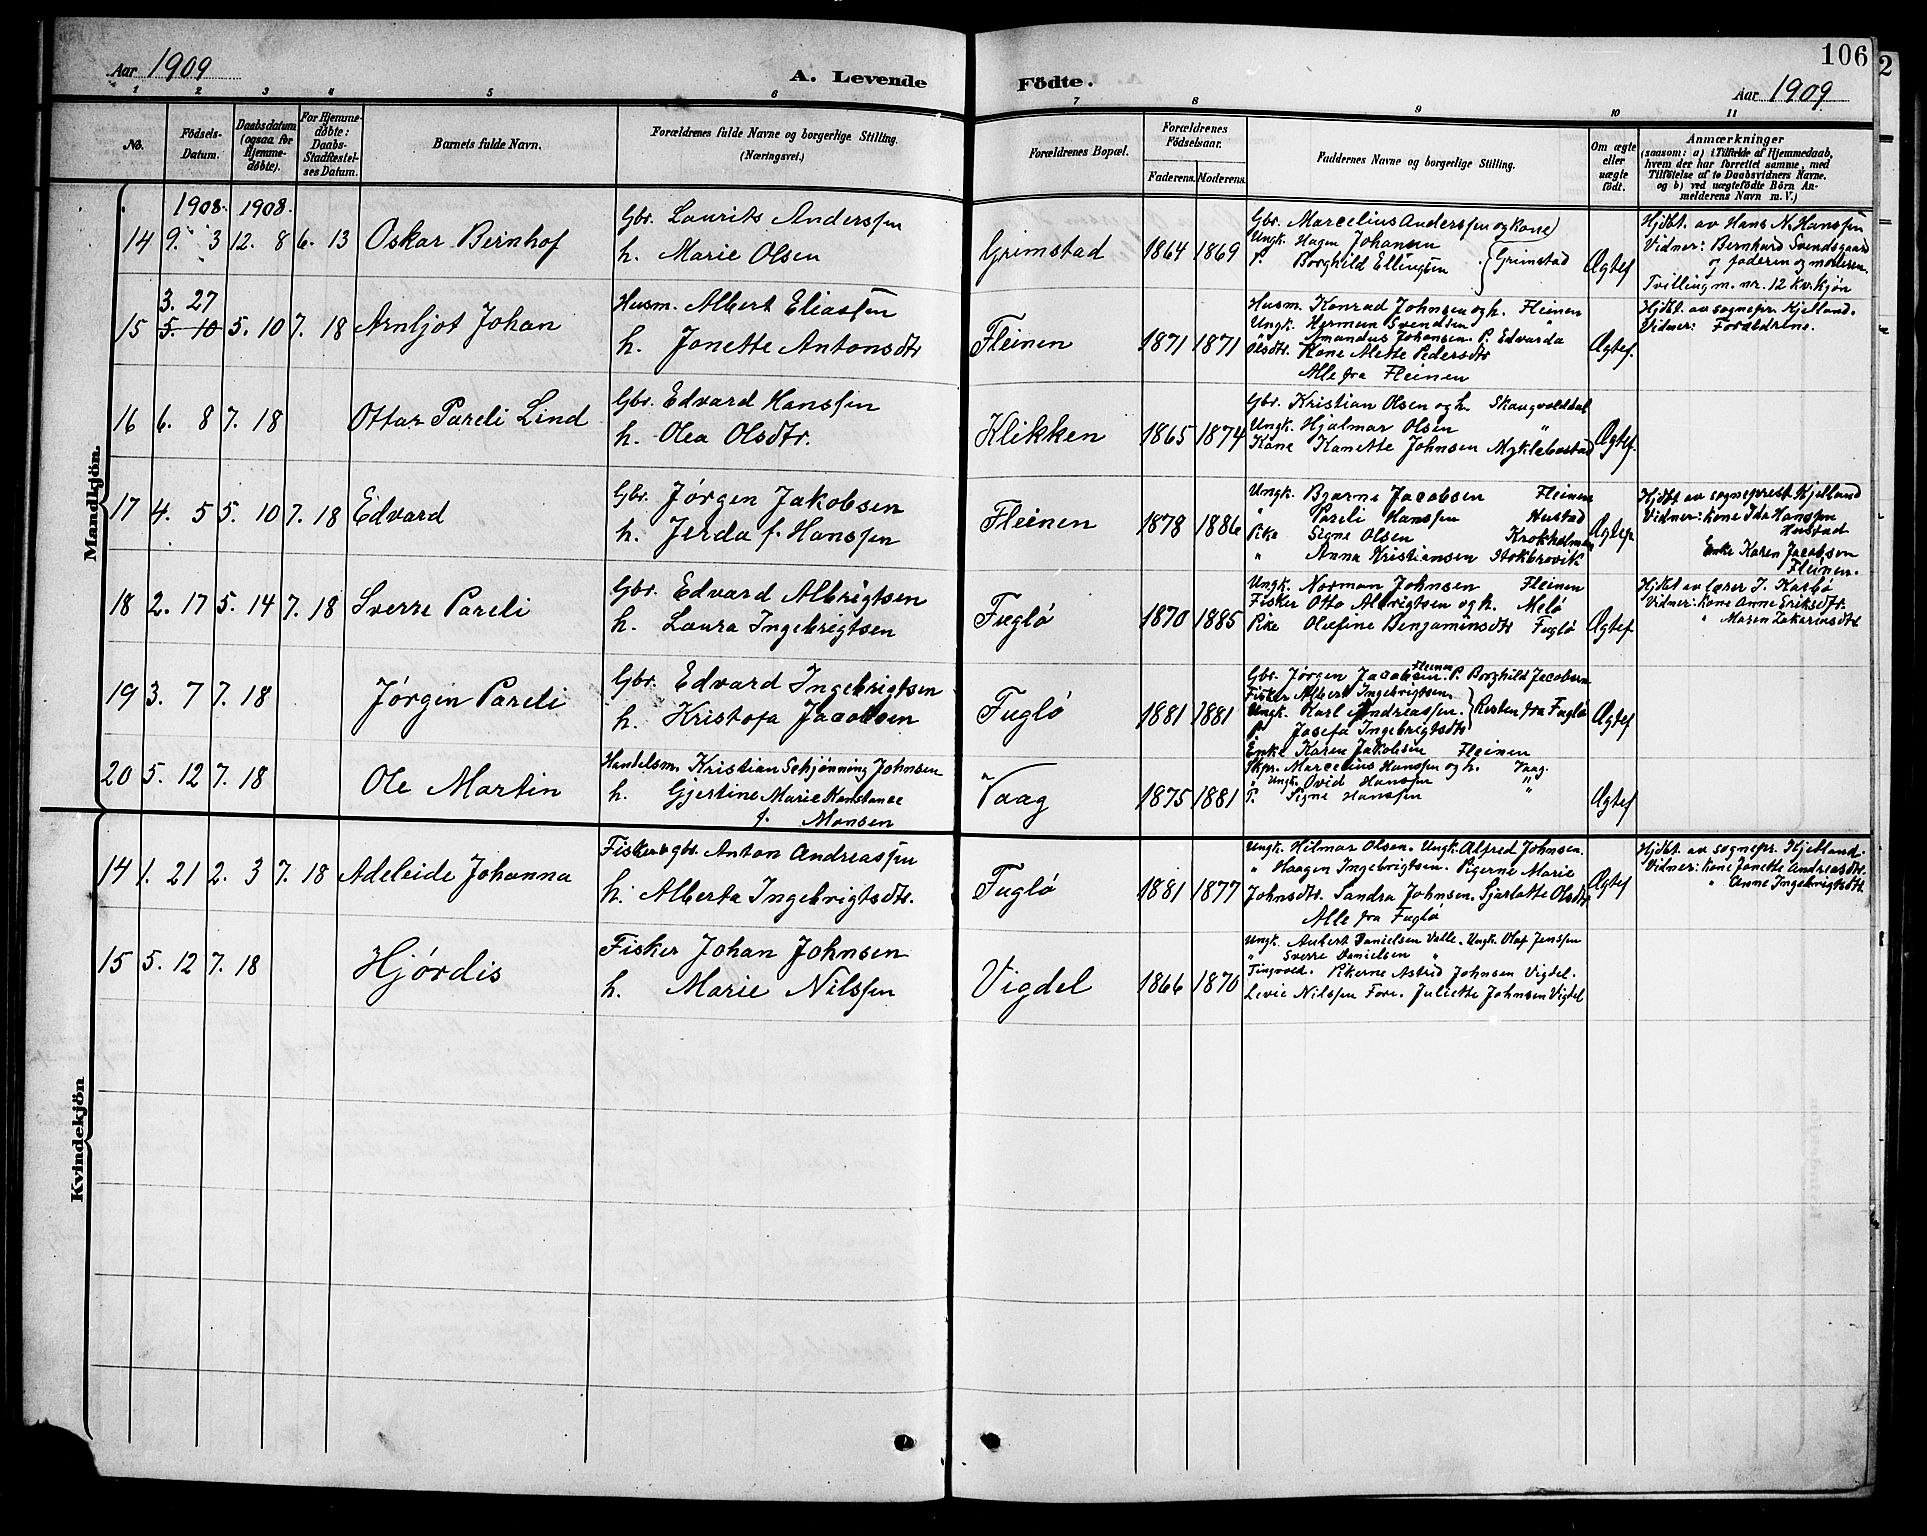 106
2
Aar 1909
A. Levende
Födte.
Aar 1909
1 2 3 4 5 6 7 8 9 10 11
No.
Födsels-
Datum.
Daabsdatum
(ogsaa for
Hjemme-
döbte).
For Hjemme-
döbte:
Daabs-
Stadfæstel-
ses Datum.
Barnets fulde Navn.
Forældrenes fulde Navne og borgerlige Stilling.
(Næringsvei.)
Forældrenes Bopæl.
Forældrenes
Födselsaar.
Faderens. Moderens.
Faddernes Navne og borgerlige Stilling.
Om ægte
eller
uægte
födt.
Anmærkninger
(saasom: a) i Tilfælde af Hjemmedaab,
hvem der har forrettet samme, med
Tilföielse af to Daabsvidners Navne.
og b) ved uægtefödte Börn An-
melderens Navn m. V.)
Mandkjön.
1908. 1908.
14 9. 3 12. 8 6. 13 Oskar Bernhof
Gbr. Laurits Anderssen
h. Marie Olsen
Grimstad 1864 1869
Gbr. Marcelius Anderssen og kone
Ungk. Hagen Johansen
P. Borghild Ellingsen Grimstad
Ægtef
Hjdbt. av Hans N. Hanssen
Vidner: Bernhard Svendsgaard
og faderen og moderen.
Tvilling m. nr. 12 kv.kjøn
3. 27
15 5. 10 5. 10 7. 18 Arnljot Johan
Husm. Albert Eliassen
h. Jonette Antonsdtr
Fleinen 1871 1871
Husm. Konrad Johnsen og h. Fleinen
Ungk. Herman Svendsen "
" Amandus Johansen. P. Edvarda
Olsdtr. Kone Mette Pedersdtr
Alle fra Fleinen
Ægtef.
Hjdbt. av sognepr. Kjelland.
Vidner: Forældrene.
16 6. 8 7. 18 Ottar Pareli Lind
Gbr. Edvard Hanssen
h. Olea Olsdtr.
Klikken 1865 1874
Gbr. Kristian Olsen og h. Skaugvolddal
Ungk. Hjalmar Olsen "
Kone Kanette Johnsen Myklebostad
Ægtef.
17 4. 5 5. 10 7. 18 Edvard
Gbr. Jørgen Jakobsen
h. Jerda f. Hanssen
Fleinen 1878 1886
Ungk. Bjarne Jacobsen Fleinen
" Pareli Hanssen Hustad
Pike Signe Olsen Krokholmen
" Anna Kristiansen Stokbrovik
Ægtef.
Hjdbt av sogneprest Kjelland
Vidner: kone Ida Hanssen
Hustad
Enke Karen Jacobsen
Fleinen.
18 2. 17 5. 14 7. 18 Sverre Pareli
Gbr. Edvard Albrigtsen
h. Laura Ingebrigtsen
Fuglø 1870 1885
Ungk. Norman Johnsen Fleinen
Fisker Otto Albrigtsen og h. Melø
Pike Olefine Benjaminsdtr Fuglø
Ægtef.
Hjdbt av lærer J. Karbø
Vidner: kone Anne Eriksdtr.
" Maren Zakariasdtr
19 3. 7 7. 18 Jørgen Pareli
Gbr. Edvard Ingebrigtsen
h. Kristofa Jacobsen
Fuglø 1881 1881
Gbr. Jørgen Jacobsen Fleinen. P. Borghild Jacobsen
Fisker Albert Ingebrigtsen.
Ungk. Karl Andreassen. Resten fra Fuglø
P. Josefa Ingebrigtsdtr
Enke Karen Jakobsen Fleinen
Ægtef
20 5. 12 7. 18 Ole Martin
Handelsm. Kristian Schjønning Johnsen
h. Gjertine Marie Konstanse
f. Monsen
Vaag 1875 1881
Skpr. Marcelius Hanssen og h. Vaag.
" Ungk. Ovid Hanssen "
P. Signe Hanssen
Ægtef
Kvindekjön
14 1. 21 2. 3 7. 18 Adeleide Johanna
Fisker og gbr. Anton Andreassen
h. Alberta Ingebrigtsdtr.
Fuglø 1881 1877
Ungk. Hilmar Olsen. Ungk. Alfred Johnsen.
" Haagen Ingebrigtsen. Pigerne Marie
Johnsdtr. Sandra Johnsen. Sjarlotte Olsdtr
Alle fra Fuglø
Ægtef
Hjdbt. av sognepr. Kjelland.
Vidner: kone Jonette Andreasdtr.
" Anne Ingebrigtsdtr
15 5. 12 7. 18 Hjørdis
Fisker Johan Johnsen
h. Marie Nilssen
Vigdel 1866 1870
Ungk. Aubert Danielsen Valle. Ungk. Olaf Jenssen
" Sverre Danielsen "
Tingvold. Pikerne Astrid Johnsen Vigdel.
Levie Nilssen Fore. Juliette Johnsen Vigdel